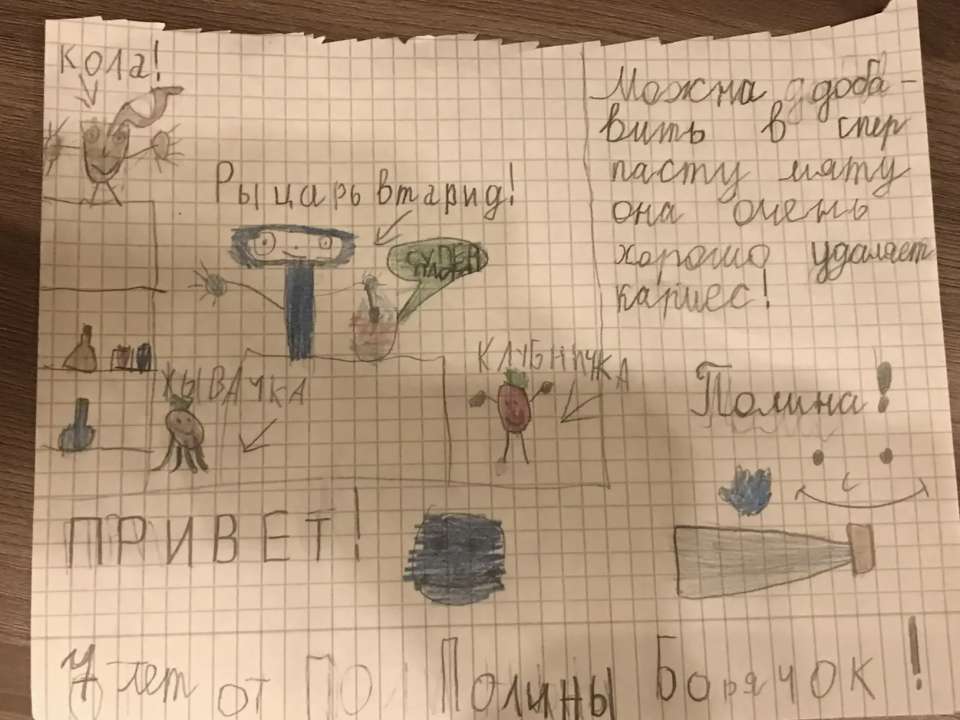 Кола!
Можна доба-
вить в спер
пасту мяту
она очень
хорошо удаляет
кариес!
Рыцарь втарид!
СУПЕР
КЛУБНИЧКА
ЖЫВАЧКА
Полина!
ПРИВЕТ!
7 лет от По Полины Борячок!